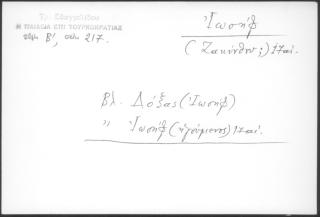 Τρ. Ευαγγελίδου
Η ΠΑΙΔΕΙΑ ΕΠΙ ΤΟΥΡΚΟΚΡΑΤΙΑΣ
τόμ. Β', σελ. 217.
Ἰωσήφ
(Ζακύνθου;) 17 αἰ.
Βλ. Δόξας (Ἰωσήφ)
" Ἰωσήφ (ἡγούμενος) 17 αἰ.